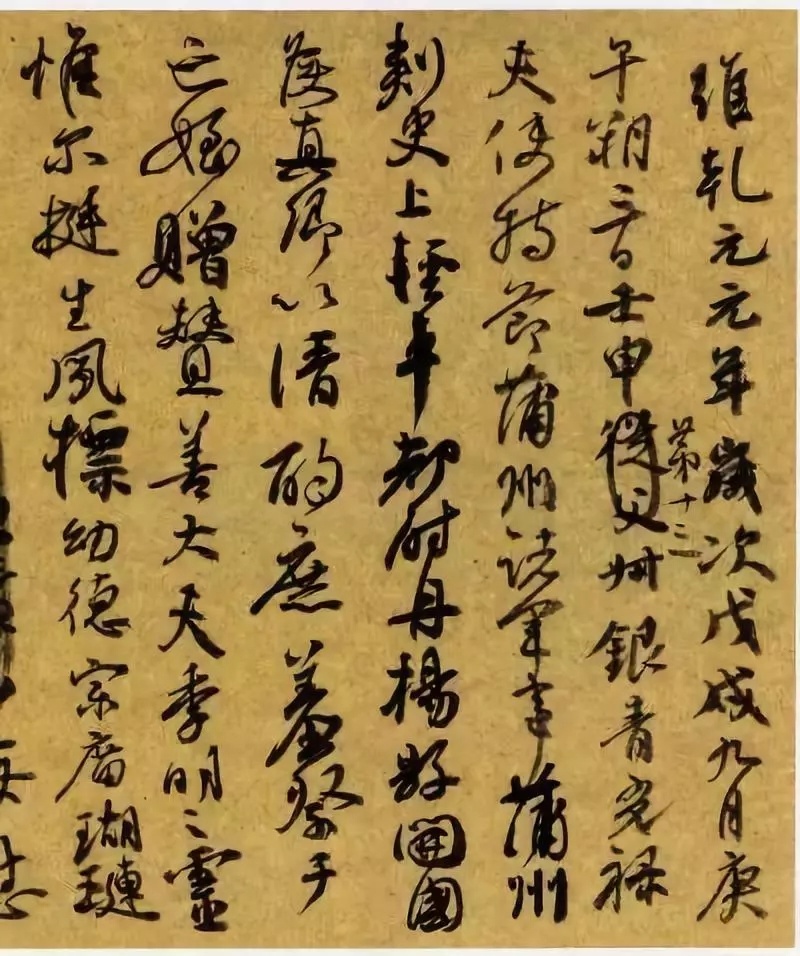 維乾元元年歲次戊戌九月庚
午朔三日壬申從父叔銀青光祿
第十三
夫使持節蒲州諸軍事蒲州
刺史上輕車都尉丹楊縣開國
侯真卿以清酌庶羞祭于
亡姪贈贊善大夫季明之靈
惟尔挺生夙標幼德宗廟瑚璉